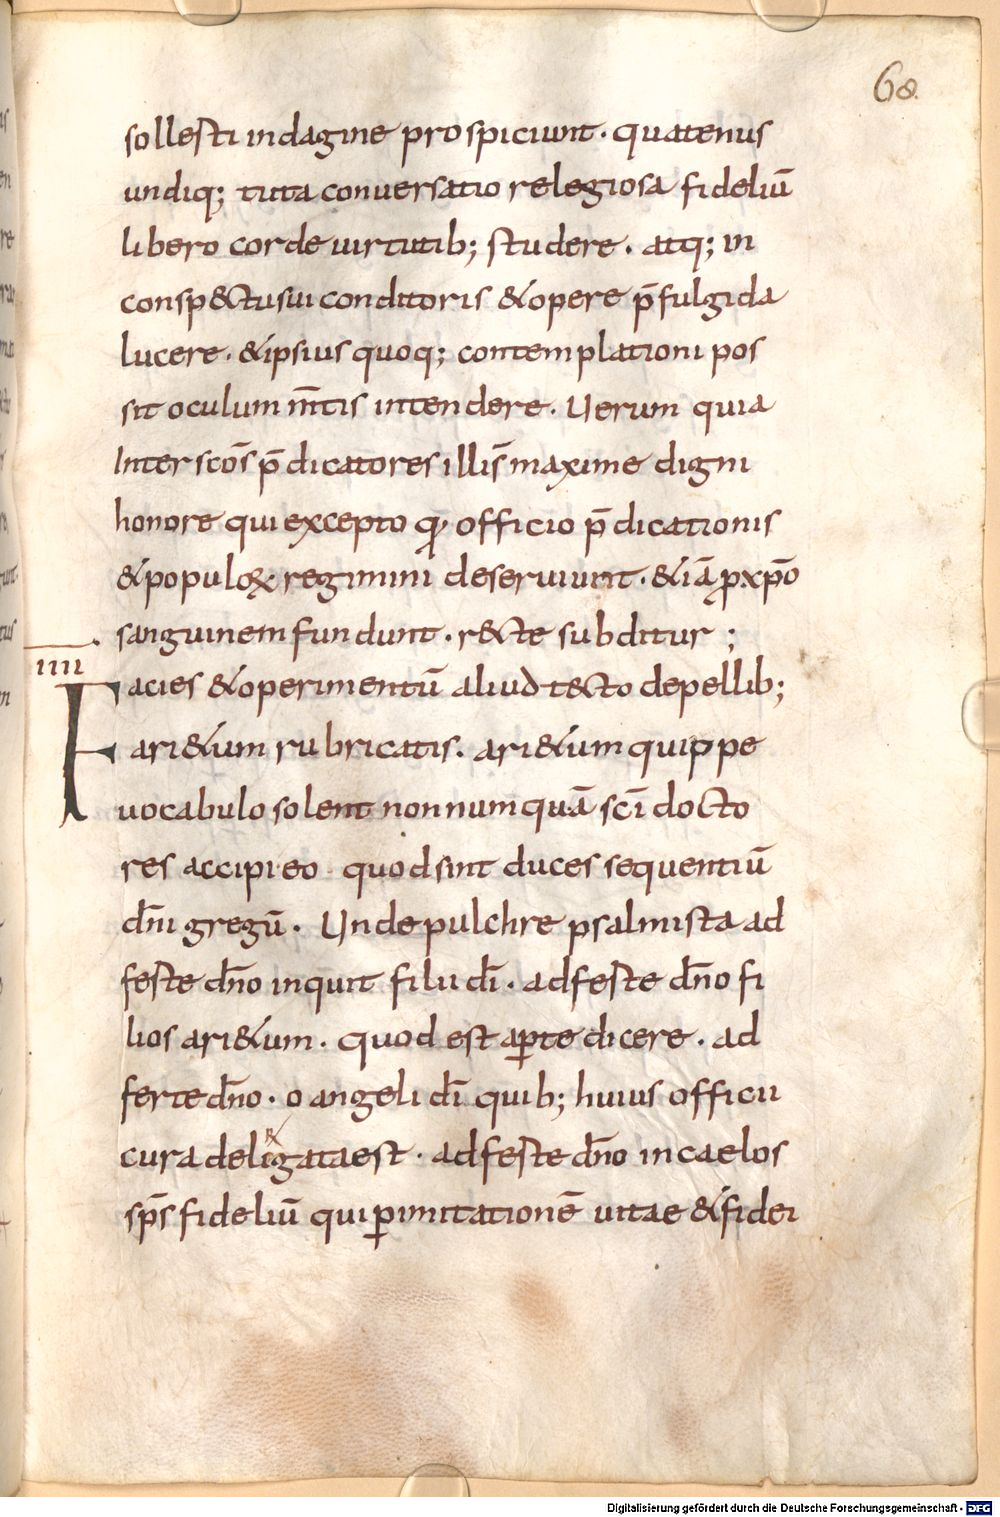 68.
sollesti indagine prospiciunt · quatenus
undiq; tuta conuersatio relegiosa fideliū
libero corde uirtutib; studere . atq; in
conspectu sui conditoris & opere p̄fulgida
lucere · & ipsius quoq; contemplationi pos
sit oculum m̄tis intendere . Uerum quia
Inter scōs p̄dicatores illis̄ maxime digni
honore qui excepto qđ officio p̄dicationis
& populoꝝ regimini deseruiunt · & iā ꝓ xp̄o
sanguinem fundunt . r&cte subditur ;
IIII
Facies & operimentū aliud tecto depellib;
ari&um rubricatis . ari&um quippe
uocabulo solent nonnumquā sc̄i docto
res accipi eo quod sint duces sequentiū
dn̄i gregū . Unde pulchre psalmista ad
feste dn̄o inquit filii dī . adfeste dn̄o fi
lios ari&um . quod est aꝑte dicere . ad
ferte dn̄o . o angeli dī quib; huius officii
cura deligata est . adfeste dn̄o in caelos
sp̄s fideliū qui ꝑ imitationē uitae & fidei
Digitalisierung gefördert durch die Deutsche Forschungsgemeinschaft - DFG